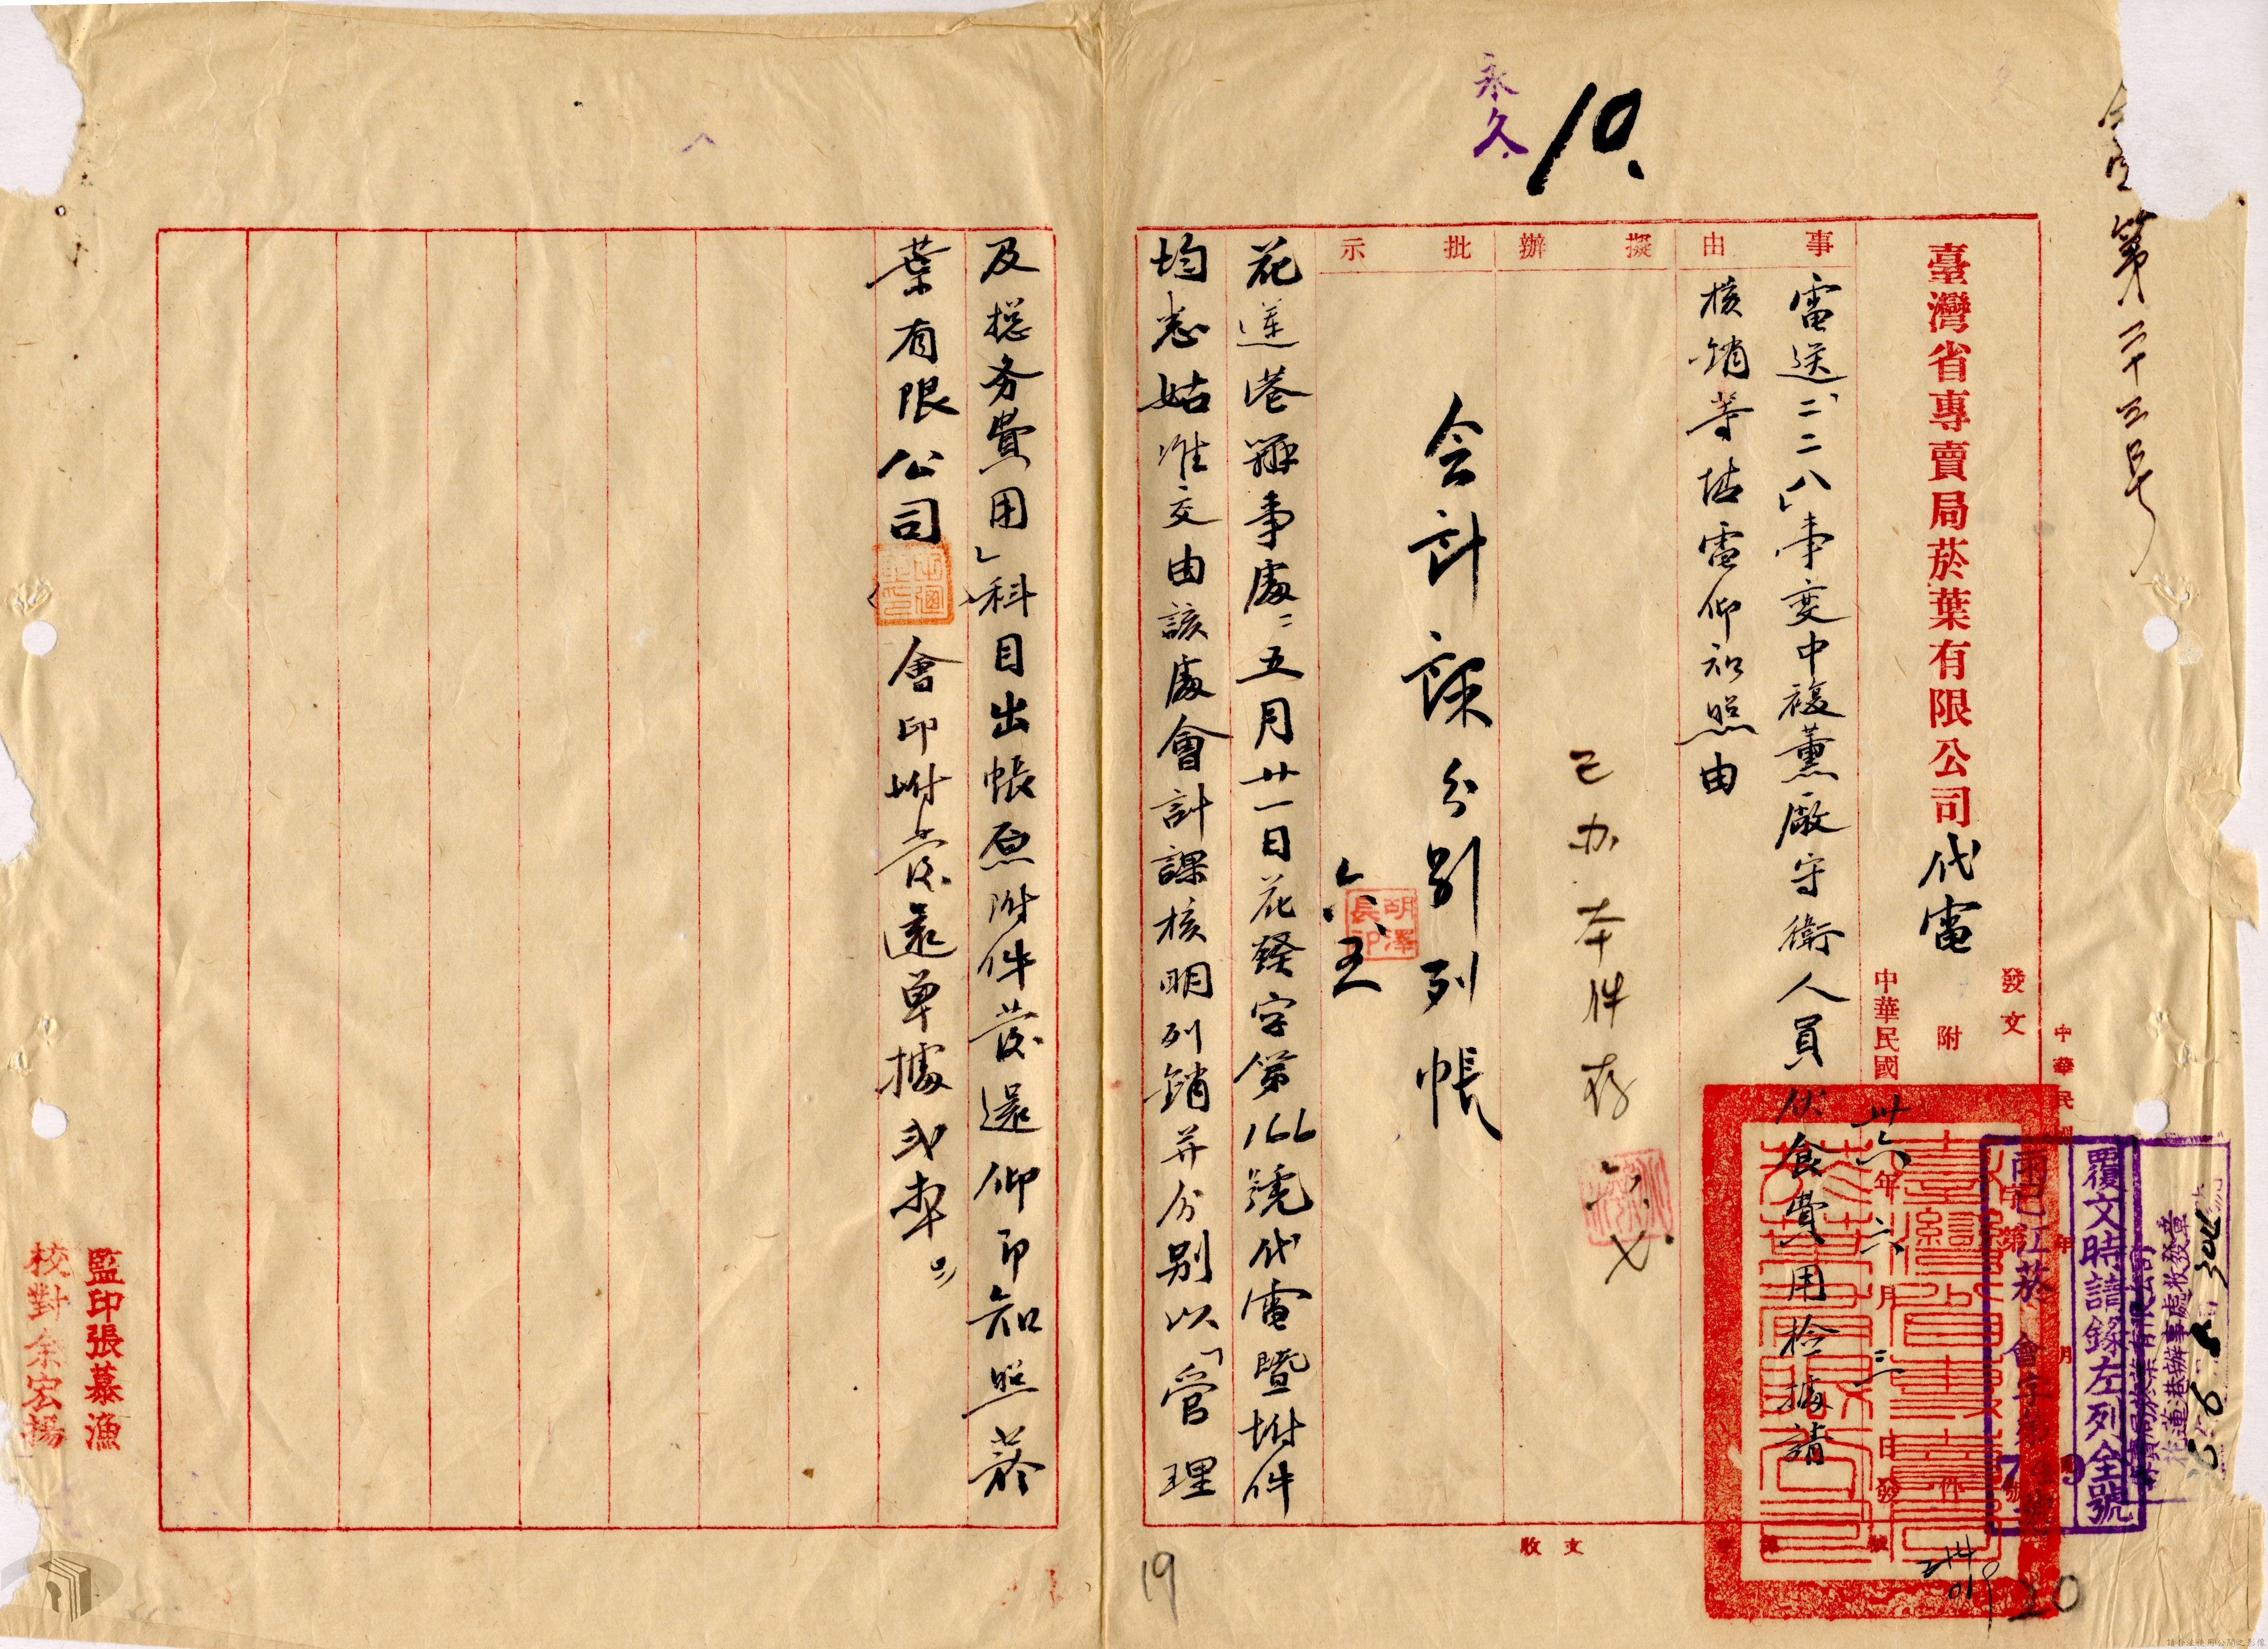 永久
10.
第二十五号
臺灣省專賣局菸葉有限公司代電
發文
附 件
中華民國卅六年六月三日發
覆文時請錄左列全號
菸 會字第
79
花蓮港辦事處收發章
36 6 5 304
事由
電送「二二八」事変中複薰廠守衛人員伙食費用檢據請
核銷等情電仰知照由
擬辦
已办本件存
六.七
批示
会計課分別列帳
六.五
胡澤長印
花蓮港辦事處:五月廿一日花發字第166號代電暨坿件
均悉姑准交由該處會計課核明列銷并分別以「管理
及總务費用」科目出帳原附件發還仰即知照菸
葉有限公司
會印坿發還单據弍

收文
監印張慕漁
校對余宏揚
19
20